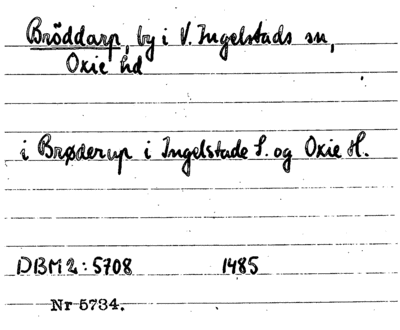 Bröddarp, by i V. Ingelstads sn,
Oxie hd
i Brøderup i Ingelstade S. og Oxie H.
DBM 2: 5708 1485
Nr 5734.